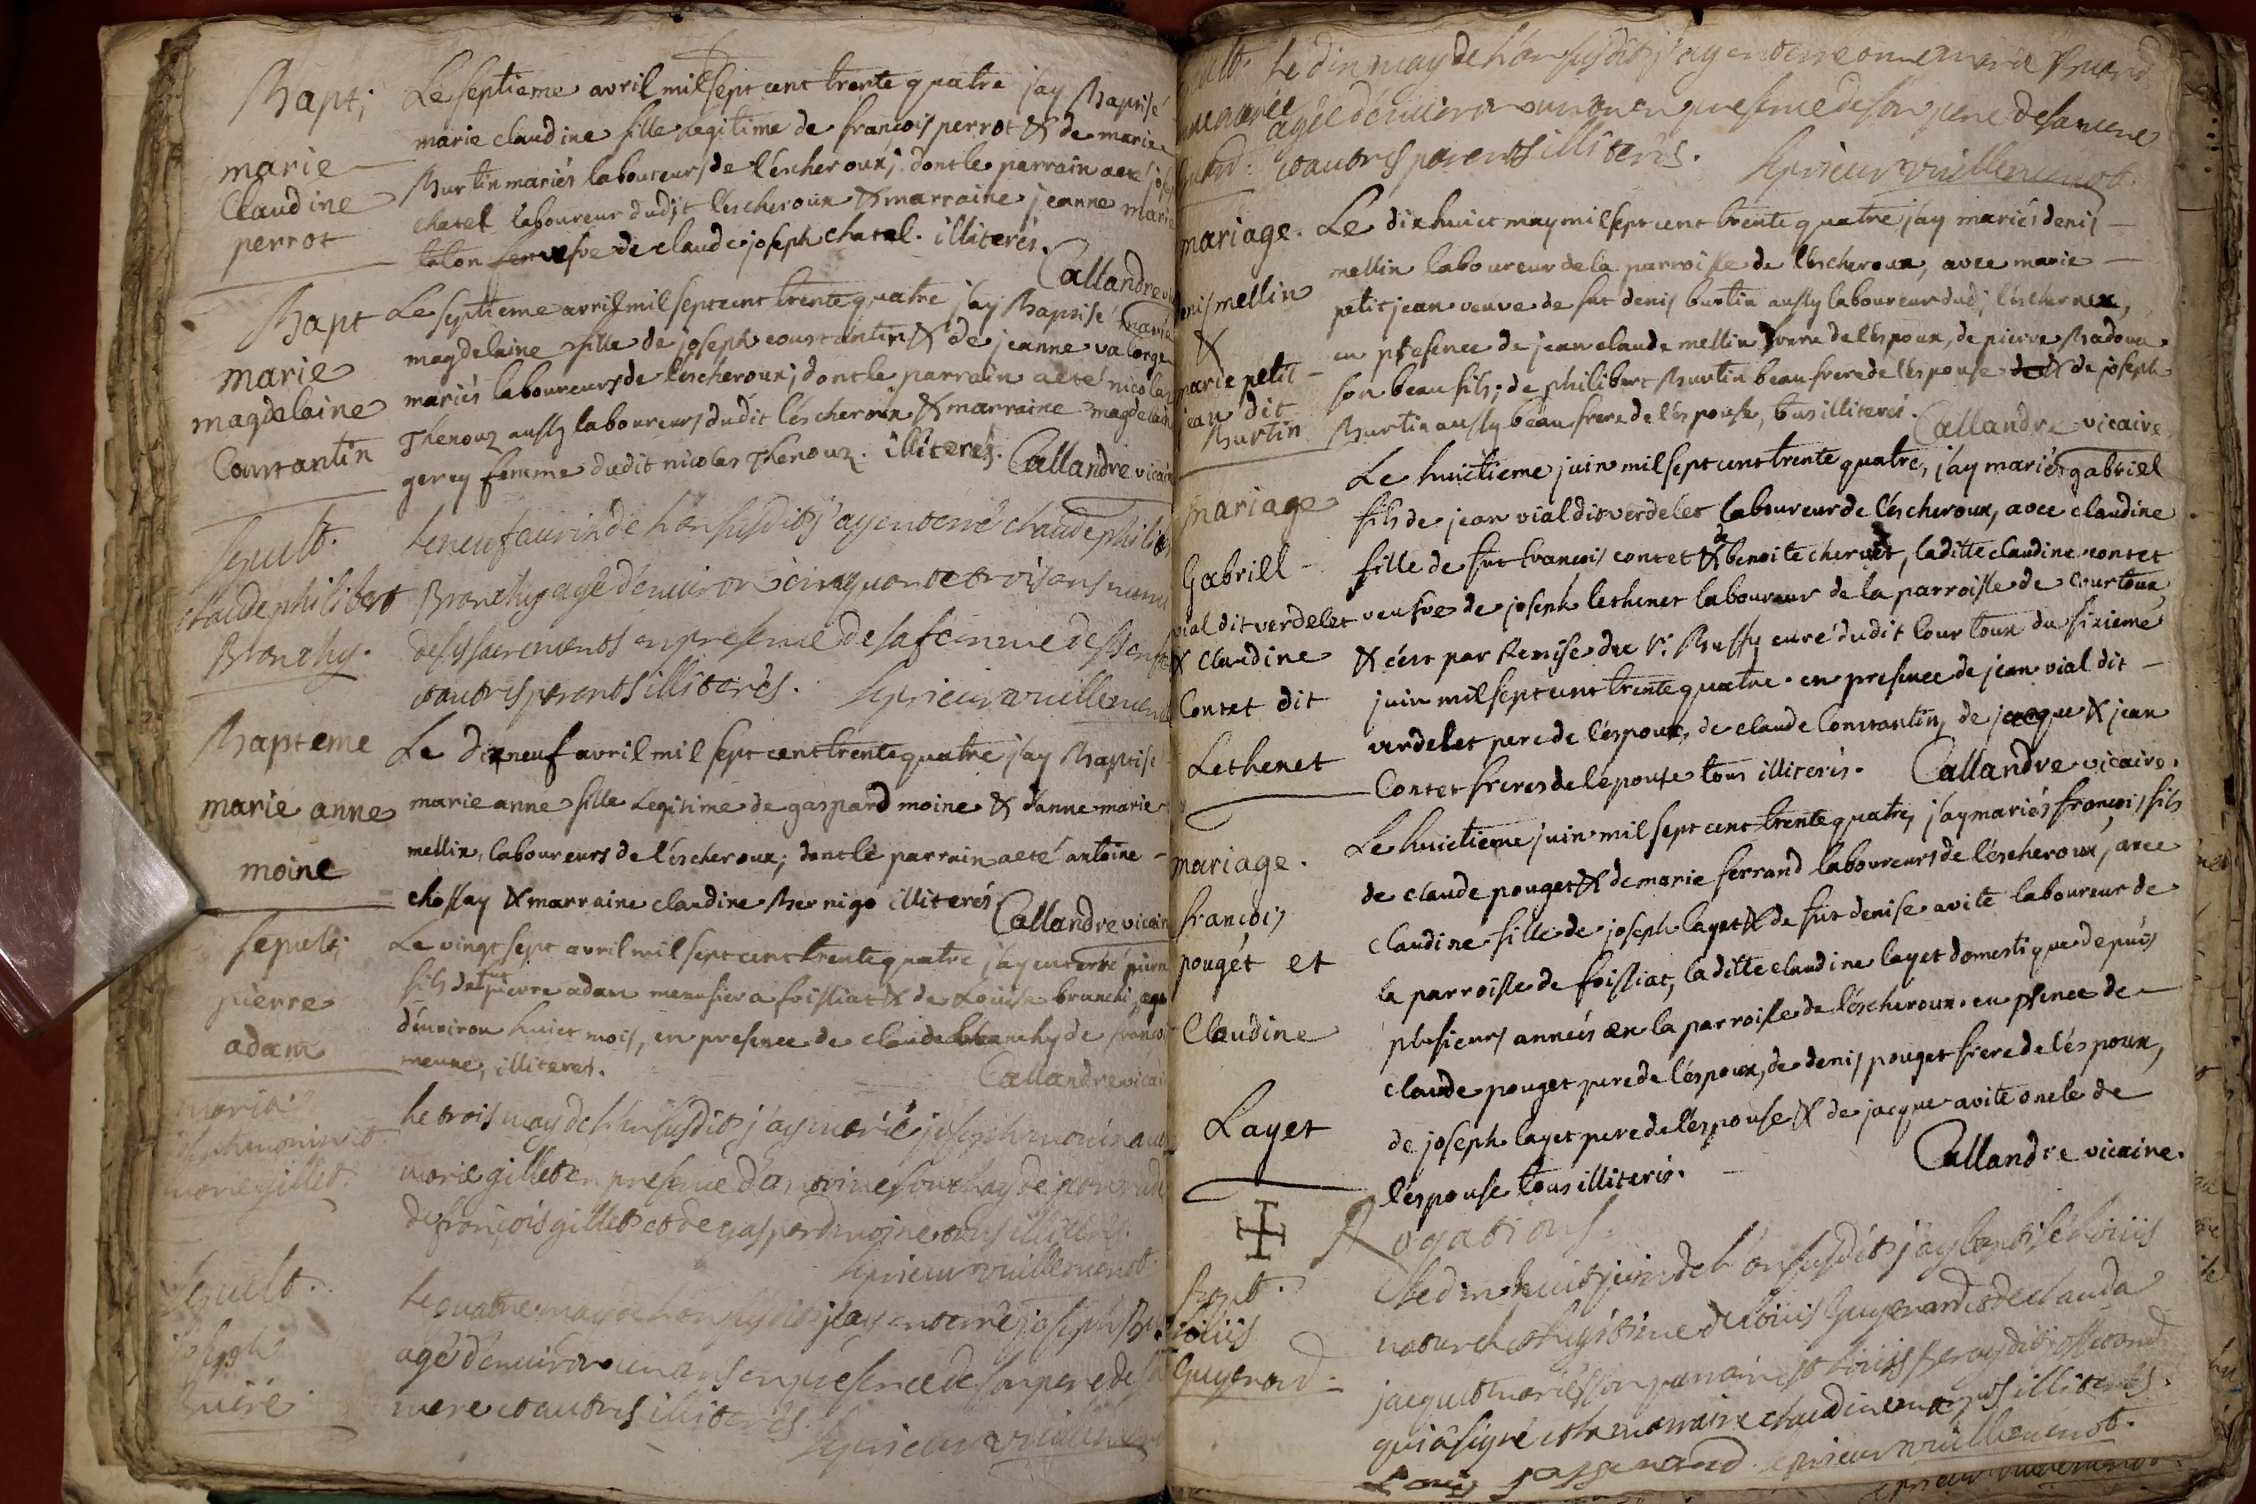 Bapt;
marie
Claudine
perrot
Le septieme avril mil sept cent trente quatre j'ay Baptisé
marie claudine fille legitime de françois perrot & de marie
Burtin mariés laboureurs de l'éscheroux; dont le parrain a eté josep
chatel laboureur dudit l'éscheroux & marraine jeanne marie
talon veufve de claude joseph chatel. illiterés.
Callandre vi
Bapt
marie
magdelaine
Constantin
Le septieme avril mil sept cent trente quatre j'ay Baptisé marie
magdelaine fille de joseph constantin & de jeanne valorge
mariés laboureurs de l'éscheroux; dont le parrain a eté nicolas
Thenouz aussy laboureurs dudit l'éscheroux & marraine magdelaine
gerey femme dudit nicolas Thenouz. illiterés. Callandre vicaire
Sepult.
claude philibert
Branchy.
Le neuf avril de l'an susdit j'ay enterré claude philibert
Branchy agé d'environ cinquante trois ans muni
de sacrements en presence de sa femme de
et autres parents illiterés. Leprieur vuillemenot
Bapteme
marie anne
moine
Le dixneuf avril mil sept cent trente quatre j'ay Baptisé
marie anne fille Legitime de gaspard moine & d'anne marie
mellin, laboureurs de l'éscheroux; dont le parrain a eté antoine
chossay & marraine claudine Bernigo illiterés
Callandre vicaire
sepult;
pierre
adam
Le vingt sept avril mil sept cent trente quatre j'ay enterré pierre
fils de fut pierre adam menusier a foissiat & de Louise branchi, agé
d'environ huict mois, en presence de claude branchy de françois
meune, illiterés.
Callandre vicai
maria.
marie gillet.
Le trois may de l'an susdit j'ay marié joseph monin avec
marie gillet en presence d'antoine
de françois gillet et de gaspard moine tous illiterés.
Leprieur vuillemenot
Sepult.
joseph
Le quatre may de l'an susdit j'ay enterré joseph
agé d'environ un ans en presence de son pere de sa
mere et autres illiterés.
Leprieur vuillemenot
Sepult. Le dix may de l'an susdit j'ay enterré anne marie
agée d'environ un an en presence de son pere de sa mere
et autres parents illiterés. Leprieur vuillemenot.
mariage.
denis mellin
&
marie petit
jean dit
Burtin
Le dix huict may mil sept cent trente quatre j'ay mariés denis
mellin laboureur de la parroisse de l'éscheroux, avec marie
petit jean veuve de fut denis burtin aussy laboureur dud; l'éscheroux,
en presence de jean claude mellin frere de l'époux, de pierre Badoux
son beau fils; de philibert Burtin beau frere de l'épouse & de joseph
Burtin aussy beau frere de l'épouse, tous illiterés. Callandre vicaire
mariage
Gabriel
vial dit verdelet
& claudine
Contet dit
Lethenet
Le huictieme juin mil sept cent trente quatre, j'ay mariés gabriel
fils de jean vial dit verdelet laboureur de l'éscheroux, avec claudine
fille de fut françois contet & de benoite chervet, laditte claudine contet
veufve de joseph lethenet laboureur de la parroisse de Courtoux
& c'est par Remise du Sr. Bussy curé dudit Courtoux du sixieme
juin mil sept cent trente quatre. en presence de jean vial dit
verdelet pere de l'époux, de claude Constantin, de jacque & jean
Contet freres de l'epouse tous illiterés. Callandre vicaire.
mariage.
françois
pougét et
Claudine
Layet
Le huictieme juin mil sept cent trente quatre, j'ay mariés françois fils
de claude pouget & de marie ferrand laboureurs de l'éscheroux, avec
claudine fille de joseph layet & de fut denise avite laboureur de
la parroisse de foissiat, laditte claudine layet domestique depuis
plusieurs années en la parroisse de l'éscheroux. en psence de
claude pouget pere de l'époux, de denis pouget frere de l'époux,
de joseph layet pere de l'épouse & de jacque avite oncle de
l'épouse tous illiterés.
Callandre vicaire.
Rogations.
Bapt.
Loüis
Guyenard.
Le dix huit juin de l'an susdit j'ay baptisé Loüis
naturel et legitime de Loüis Guyenard et de clauda
jacquet mariés son parrain st Loüis
qui a signé et la marraine claudine illiterés.
Loüis Leprieur vuillemenot.